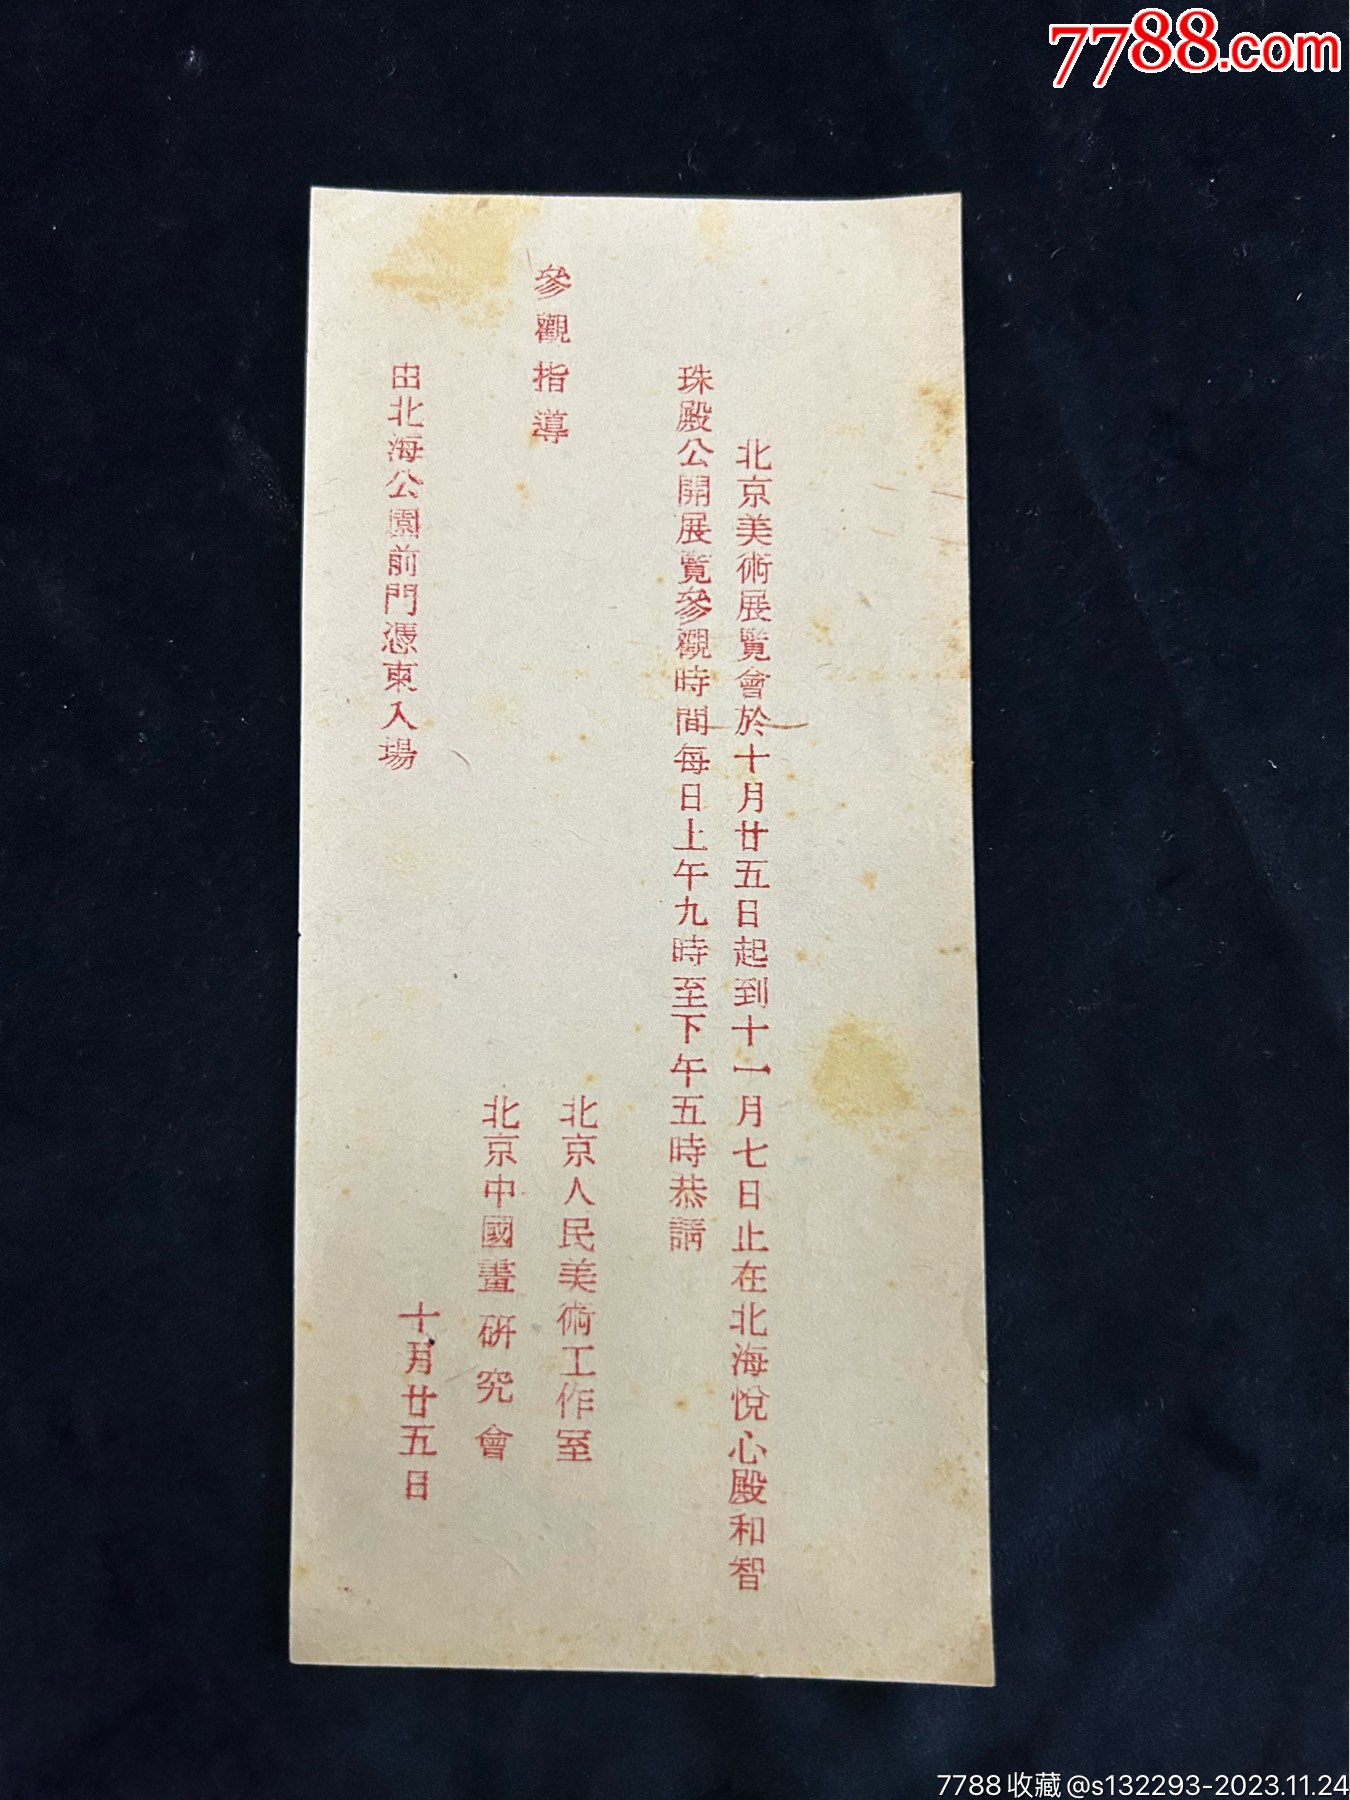 7788.com
北京美術展覽會於十月廿五日起到十一月七日止在北海悅心殿和智
珠殿公開展覽參觀時間每日上午九時至下午五時恭請
參觀指導
北京人民美術工作室
北京中國畫研究會
十月廿五日
由北海公園前門憑柬入場
7788收藏@s132293-2023.11.24